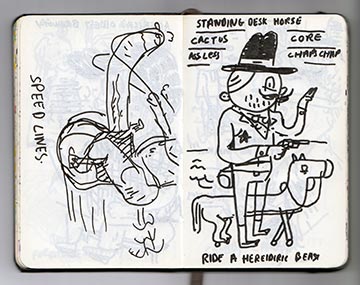 SPEED LINES
STANDING DESK HORSE
CACTUS
ASSLESS
CORE
CHAPSCHAP
RIDE A HEREIDIRIC BEAST